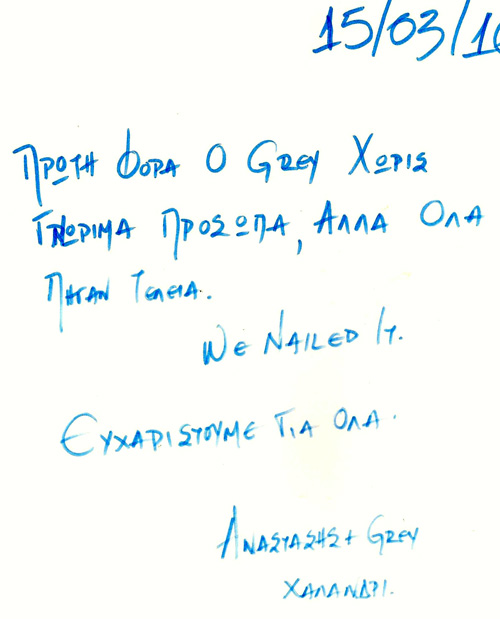 15/03/16
ΠΡΩΤΗ ΦΟΡΑ Ο GREY ΧΩΡΙΣ
ΓΝΩΡΙΜΑ ΠΡΟΣΩΠΑ, ΑΛΛΑ ΟΛΑ
ΠΗΓΑΝ ΤΕΛΕΙΑ.
WE NAILED IT.
ΕΥΧΑΡΙΣΤΟΥΜΕ ΓΙΑ ΟΛΑ.
ΑΝΑΣΤΑΣΗΣ + GREY
ΧΑΛΑΝΔΡΙ.